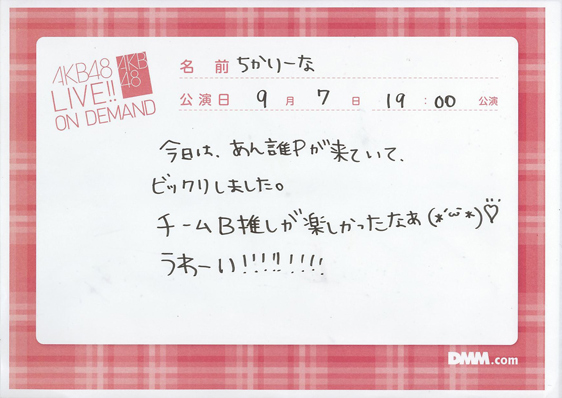 AKB48
LIVE!!
ON DEMAND
AKB
48
名前 ちかりーな
公演日 9月7日 19:00 公演
今日は、あん誰Pが来ていて、
ビックリしました。
チームB推しが楽しかったなぁ(*´ω`*)♡
うわーい!!!!!!!!!
DMM.com